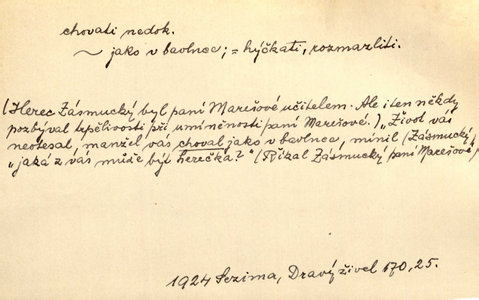 chovati nedok.
~ jako v bavlnce; = hýčkati, rozmazliti.
(Herec Zásmucký byl paní Marešové učitelem. Ale i ten někdy
pozbýval trpělivosti při umíněnosti paní Marešové.) „Život vás
neotesal, manžel vás choval jako v bavlnce, mínil (Zásmucký),
„jaká z vás může být herečka?“ (Říkal Zásmucký paní Marešové)
1924 Sezima, Dravý živel 170, 25.